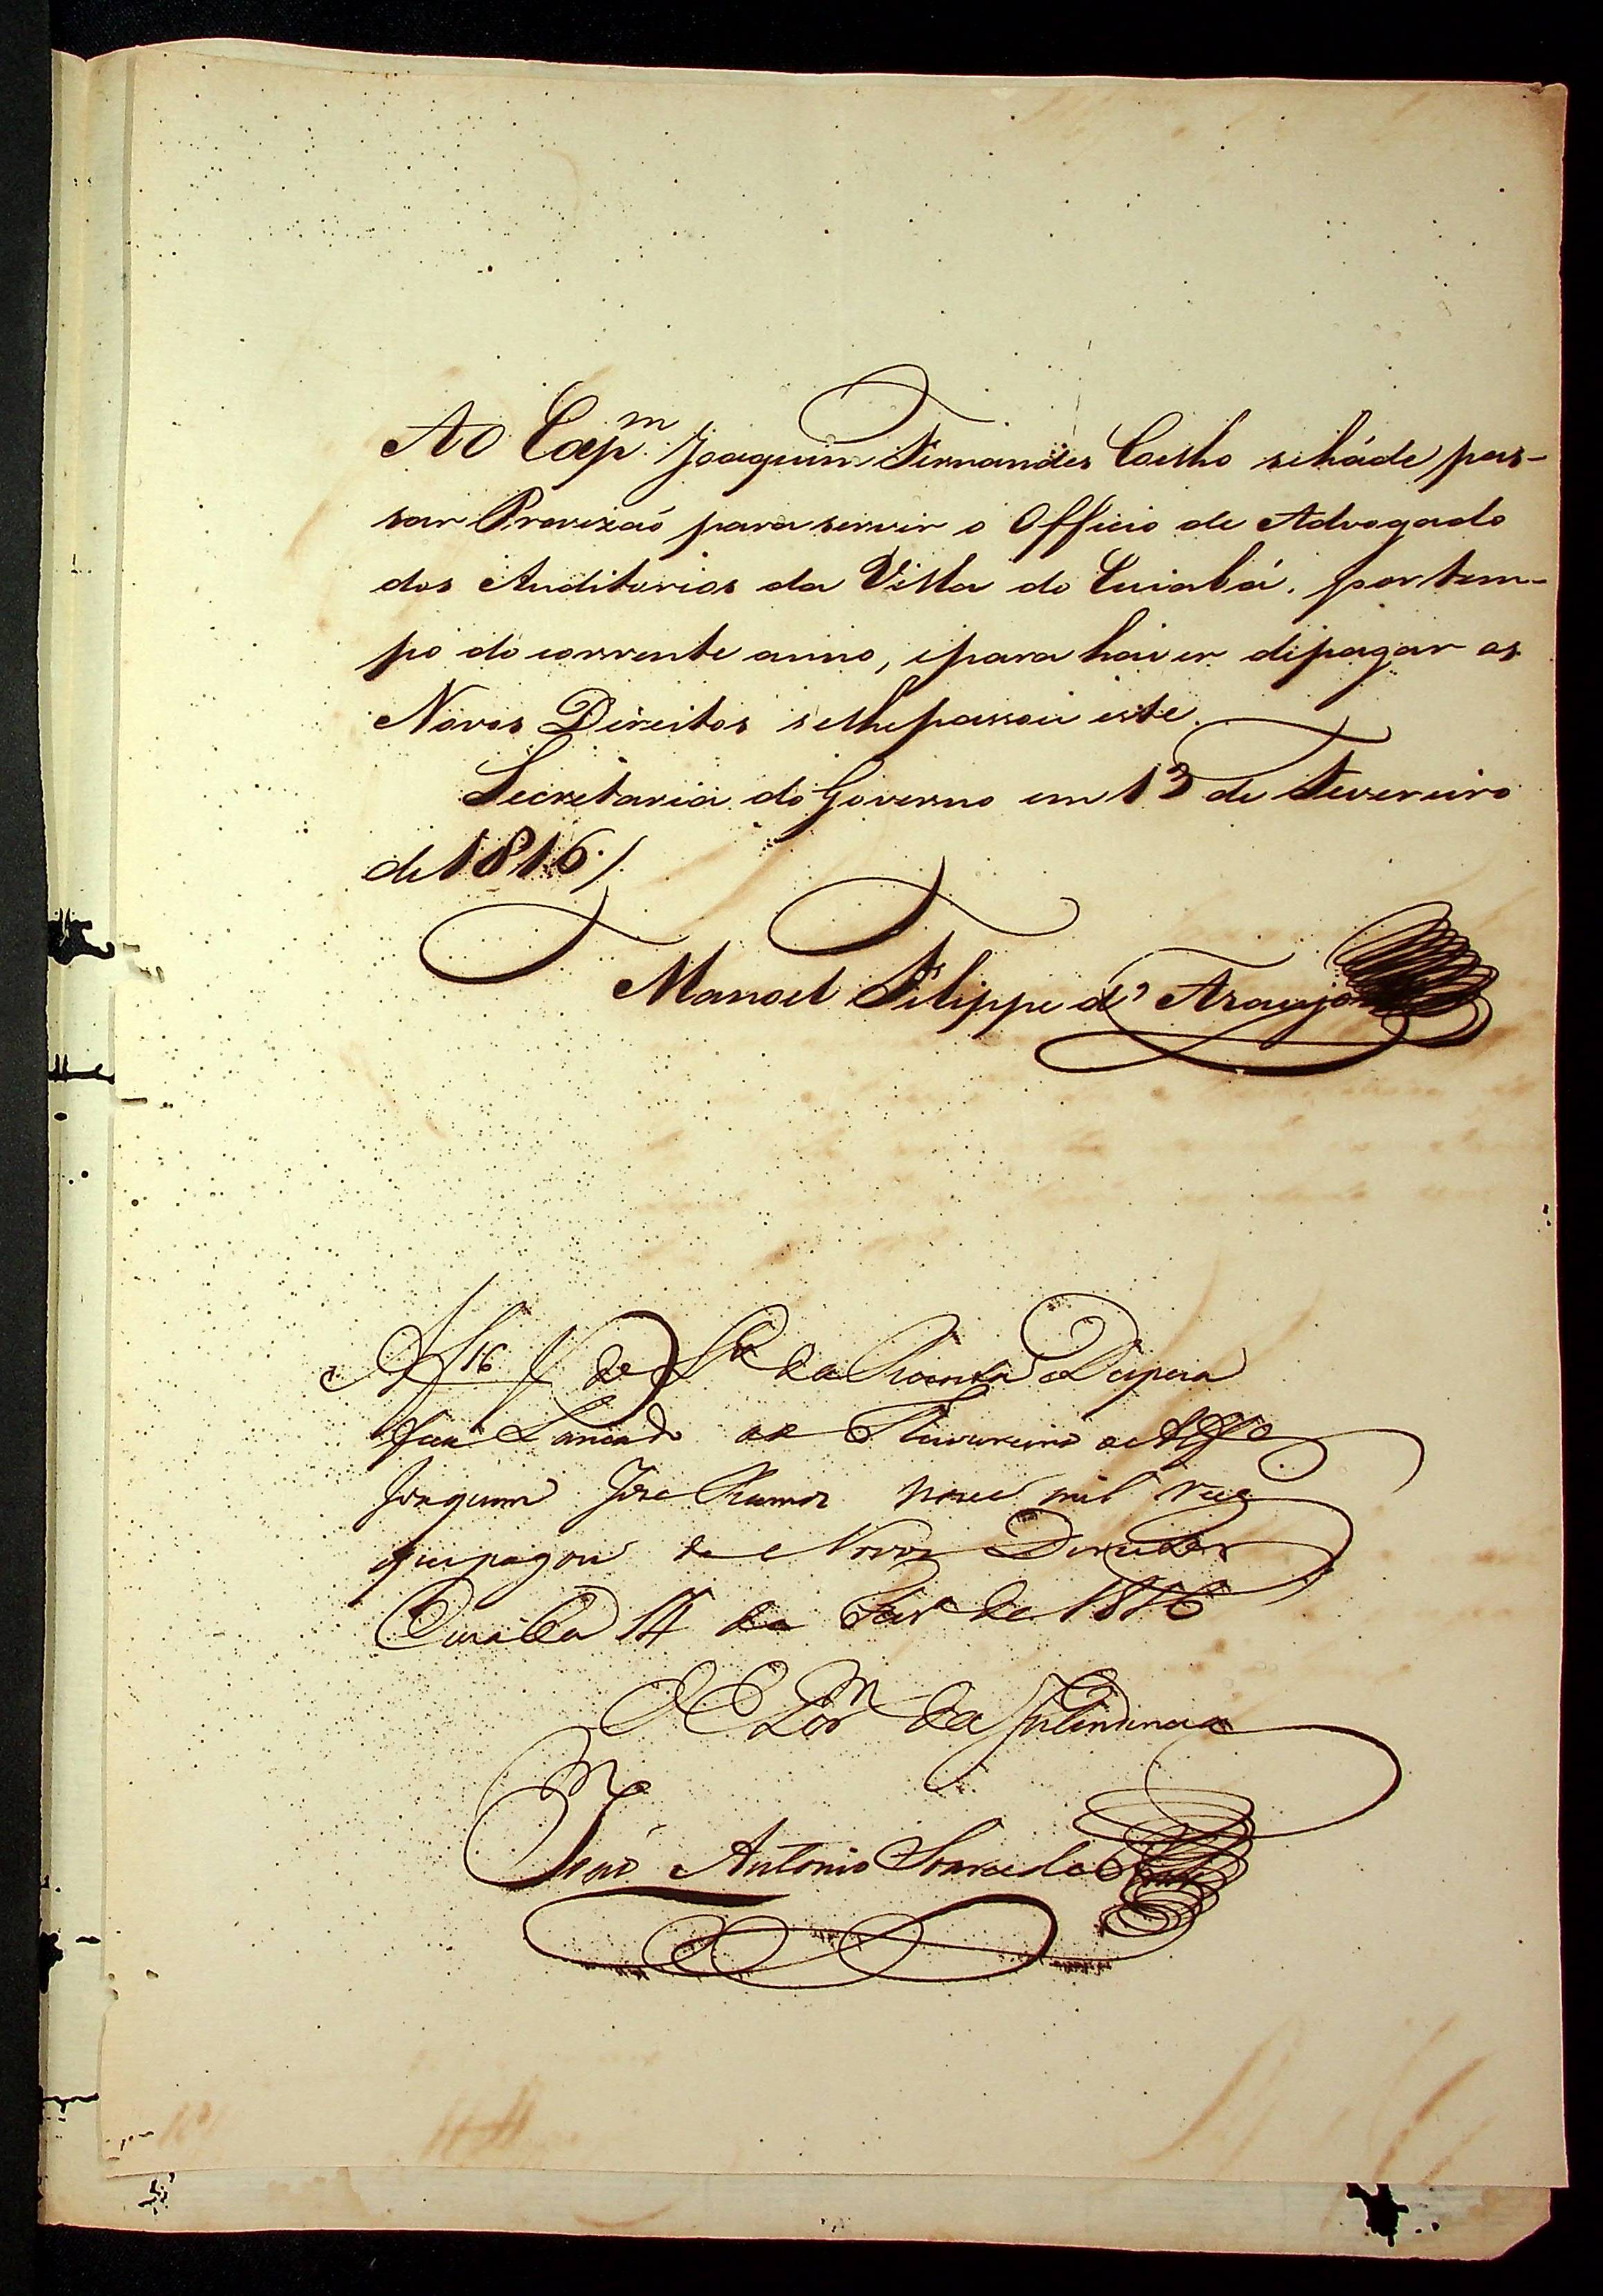 Ao Capm. Joaquim Fernandes Coelho seháde pas-
sar Provizaõ para servir o Officio de Advogado
dos Auditorios da Villa do Cuiabá, por tem-
po do corrente anno, epara haver depagar os
Novos Direitos selhepassou este.
Secretaria do Governo em 13 de Fevereiro
de 1816./.
Manoel Filippe d' Araujo
Af 16 do Lo da Receita e Despeza
fica Lançado ao Thezoureiro
Joaquim Joze Ramos nove mil reis
quepagou de Novos Direitos
Cuiaba 14 de Fevo de 1816
O Escram da Intendencia
Antonio Soares